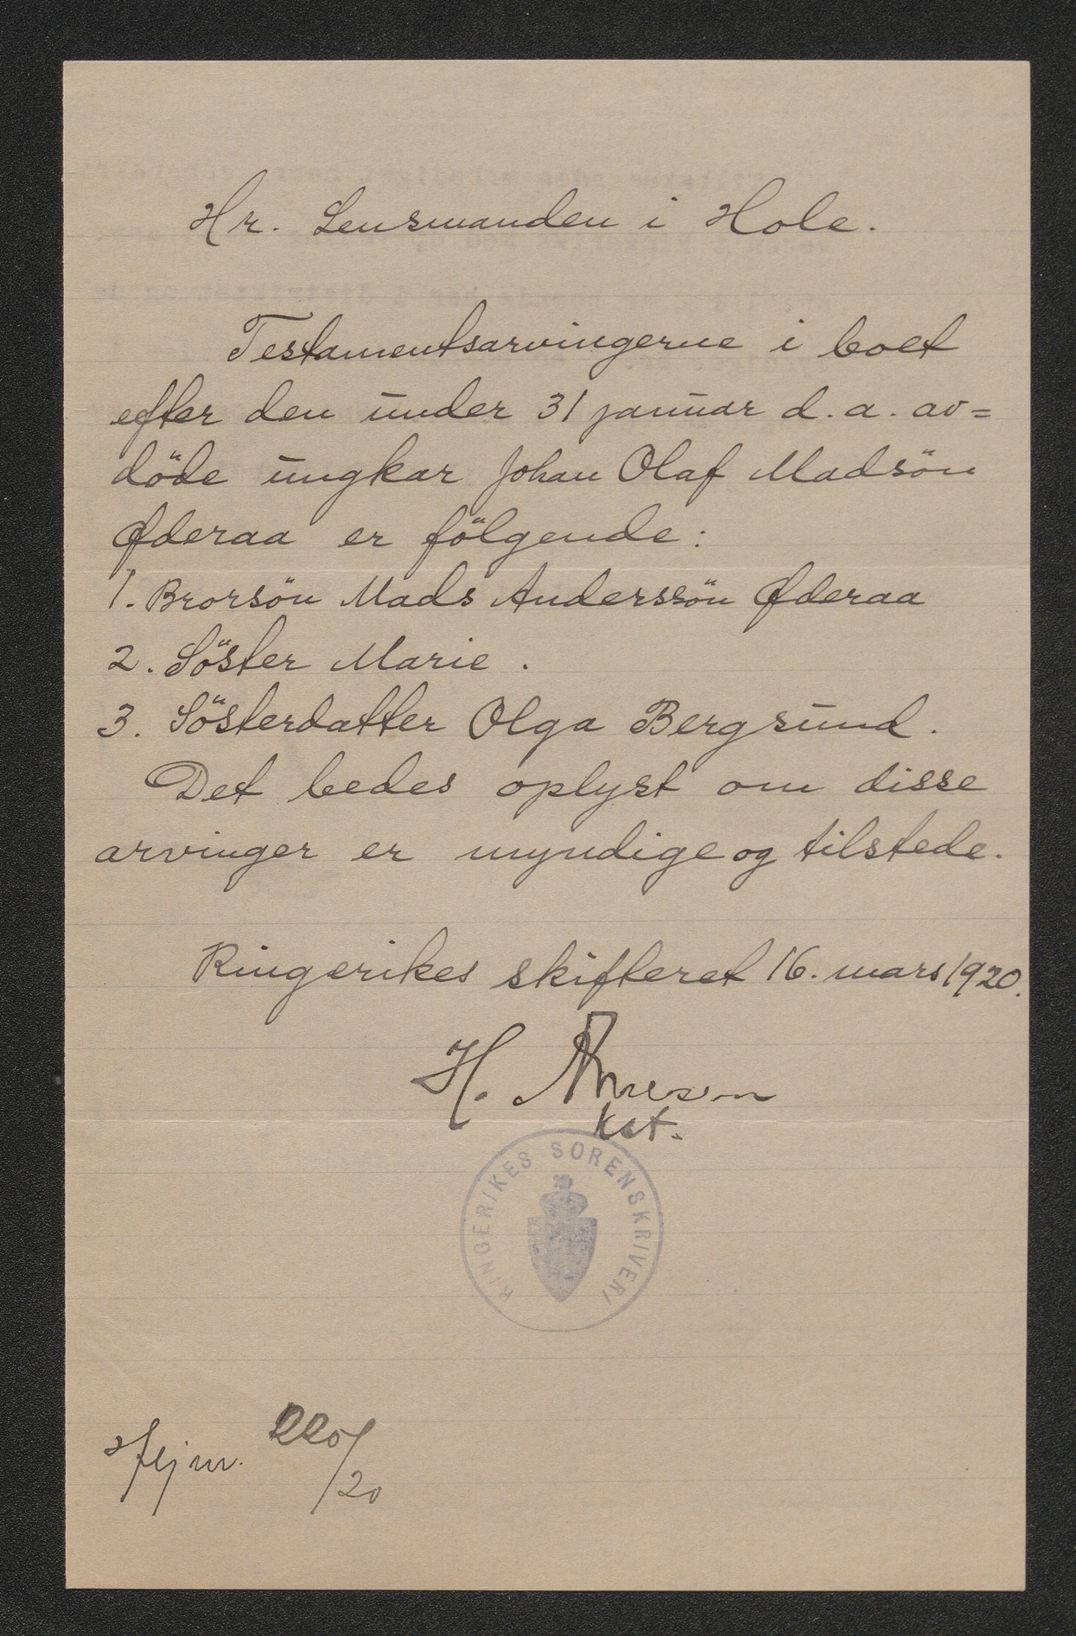 Hr. Lensmanden i Hole.
Testamentsarvingerne i boet
efter den under 31 januar d. a. av=
döde ungkar Johan Olaf Madsön
Øderaa er fölgende:
1. Brorsön Mads Anderssön Øderaa
2. Söster Marie.
3. Sösterdatter Olga Bergsund.
Det bedes oplyst om disse
arvinger er myndige og tilstede.
Ringerikes skifteret 16. mars 1920.
H.
kst.
RINGERIKES SORENSKRIVERI
220/20